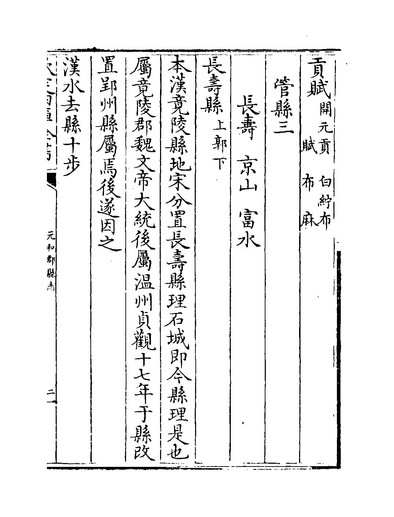 貢賦開元貢白紵布
賦布麻
管縣三
長壽 京山 富水
長壽縣上郭下
本漢竟陵縣地宋分置長壽縣理石城即今縣理是也
屬竟陵郡魏文帝大統後屬温州貞觀十七年于縣改
置郢州縣屬焉後遂因之
漢水去縣十步
元和郡縣志
二